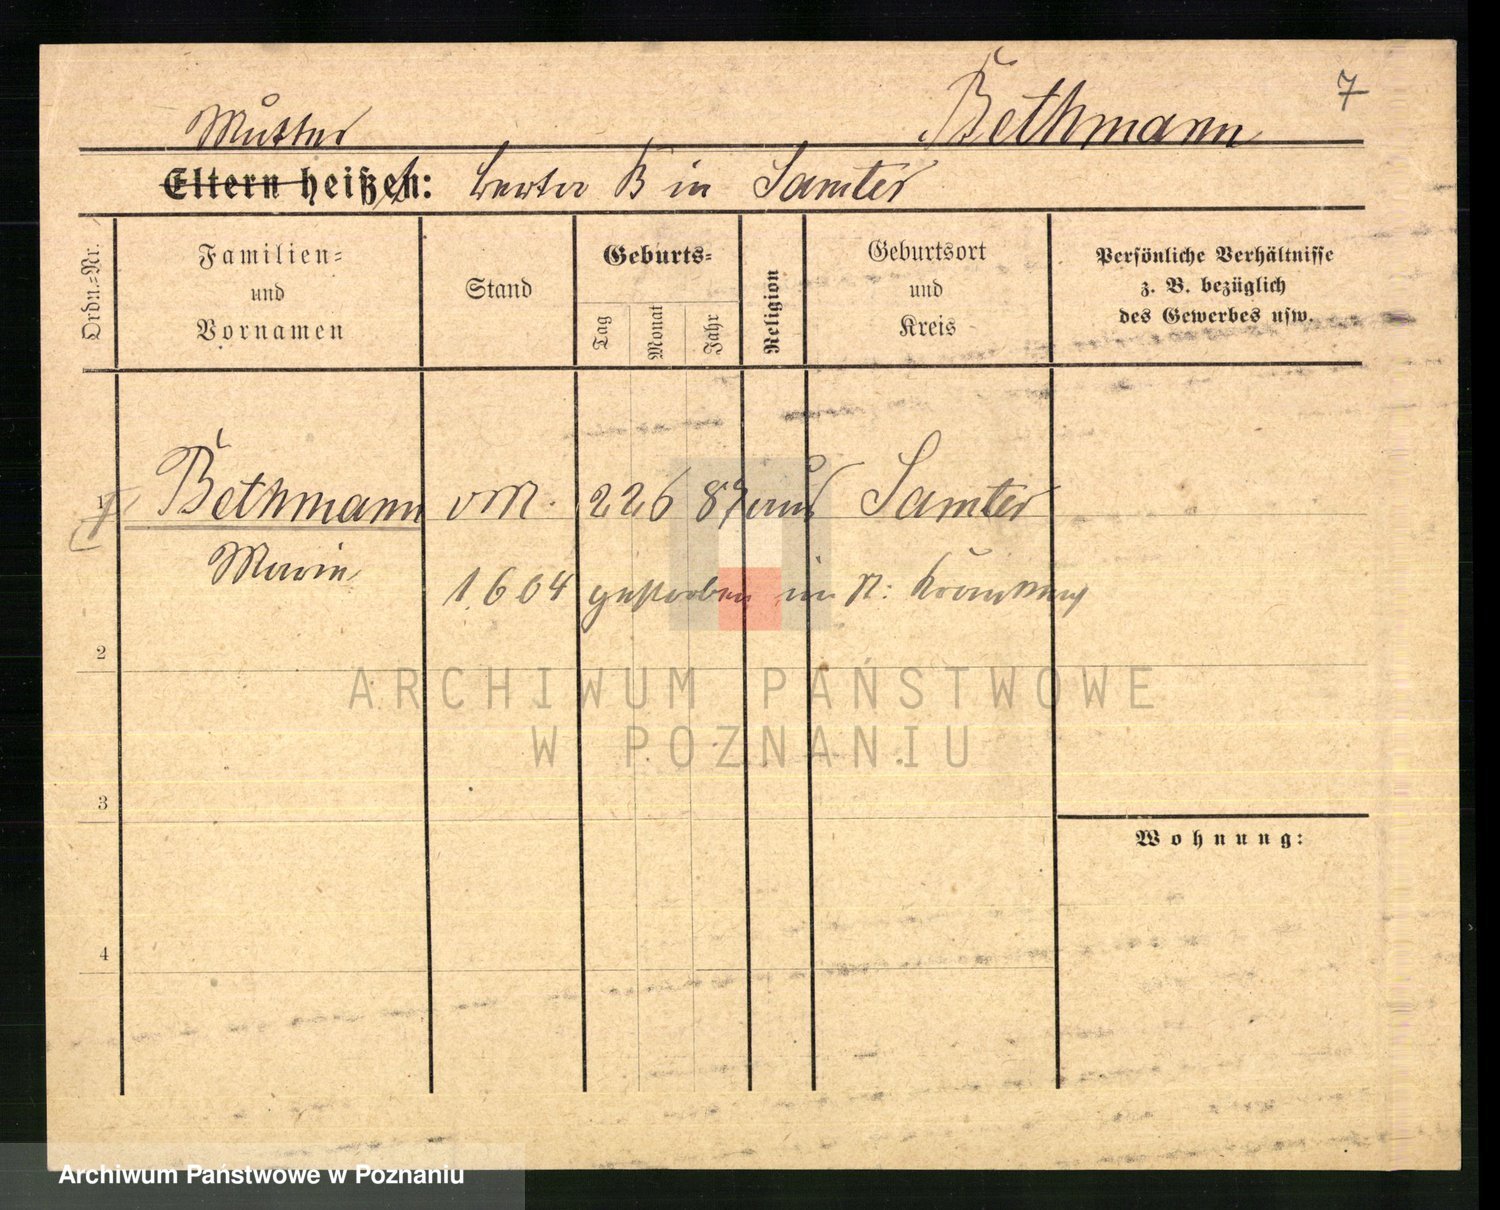 7
Mutter
Bethmann
Eltern heißen: Berta B in Samter
Ordn.-Nr.
Familien=
und
Vornamen
Stand
Geburts=
Tag
Monat
Jahr
Religion
Geburtsort
und
Kreis
Persönliche Verhältnisse
z. B. bezüglich
des Gewerbes usw.
1 Bethmann 22 6 87 aus Samter
Marie
1 6 04 gestorben im St: Krankenh
2
3
4
Wohnung:
ARCHIWUM PAŃSTWOWE
W POZNANIU
Archiwum Państwowe w Poznaniu